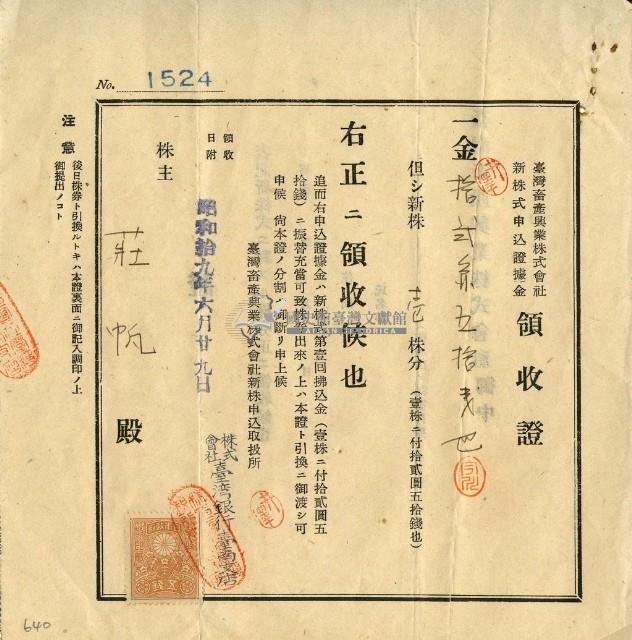 No. 1524
臺灣畜產興業株式會社
新株式申込證據金
領收證
一金拾弐円五拾戋也
但シ新株 壱 株分(壹株ニ付拾貳圓五拾錢也)
右正ニ領收候也
追而右申込證據金ハ新株式第壹回拂込金(壹株ニ付拾貳圓五
拾錢)ニ振替充當可致株券出來ノ上ハ本證ト引換ニ御渡シ可
申候 尚本證ノ分割ハ御斷リ申上候
臺灣畜產興業株式會社新株申込取扱所
株式會社臺灣銀行臺南支店
領收
日附
昭和拾九年六月廿九日
株主
莊 帆
殿
注意 後日株券ト引換ルトキハ本證裏面ニ御記入調印ノ上
御提出ノコト
國史館臺灣文獻館
TAIWAN HISTORICA
640